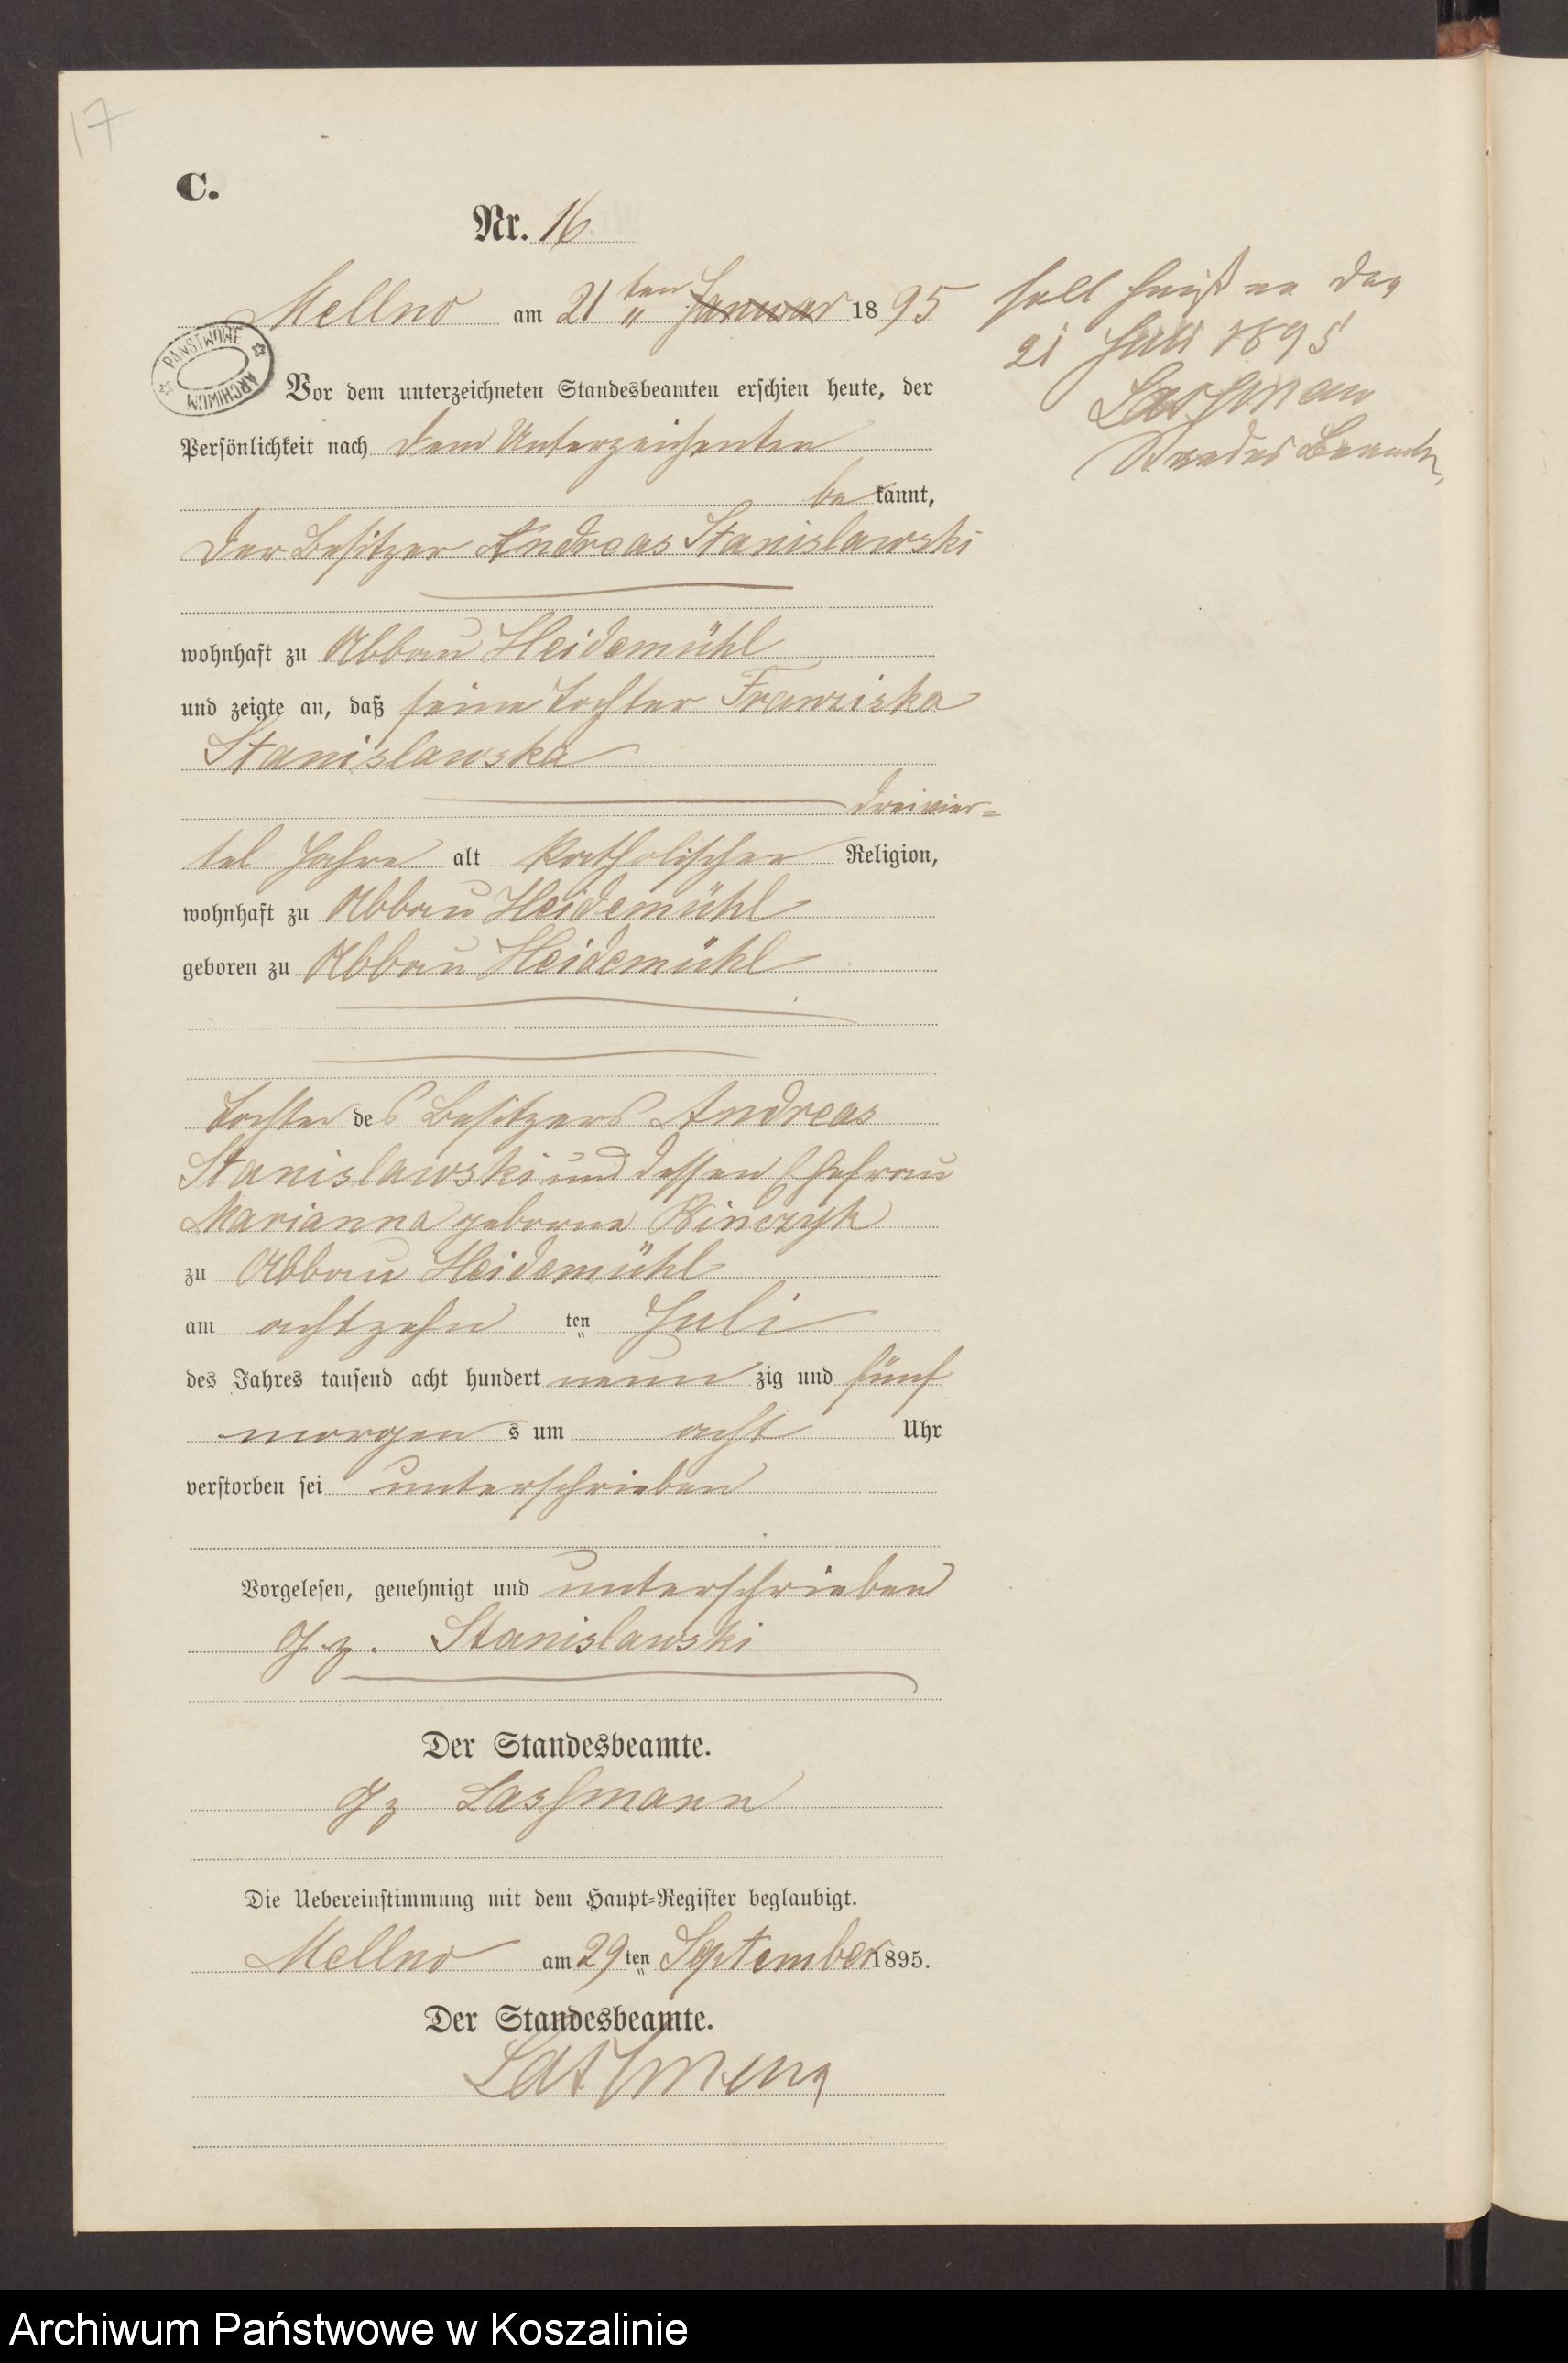 17
C.
Nr. 16
Mellno am 21ten Januar 1895
PAŃSTWOWE ARCHIWUM
Vor dem unterzeichneten Standesbeamten erschien heute, der
Persönlichkeit nach dem Unterzeichneten
be kannt,
der Besitzer Andreas Stanislawski
wohnhaft zu Abbau Heidemühl
und zeigte an, daß seine Tochter Franziska
Stanislawska
dreivier=
tel Jahre alt katholischer Religion,
wohnhaft zu Abbau Heidemühl
geboren zu Abbau Heidemühl
Tochter des Besitzers Andreas
Stanislawski und dessen Ehefrau
Marianna geborene
zu Abbau Heidemühl
am achtzehn ten Juli
des Jahres tausend acht hundert neun zig und fünf
morgen s um acht Uhr
verstorben sei unterschrieben
Vorgelesen, genehmigt und unterschrieben
gz. Stanislawski
Der Standesbeamte.
gz Lassmann
Die Uebereinstimmung mit dem Haupt=Register beglaubigt.
Mellno am 29ten September 1895.
Der Standesbeamte.
soll heißen den
21 Juli 1895
Archiwum Państwowe w Koszalinie